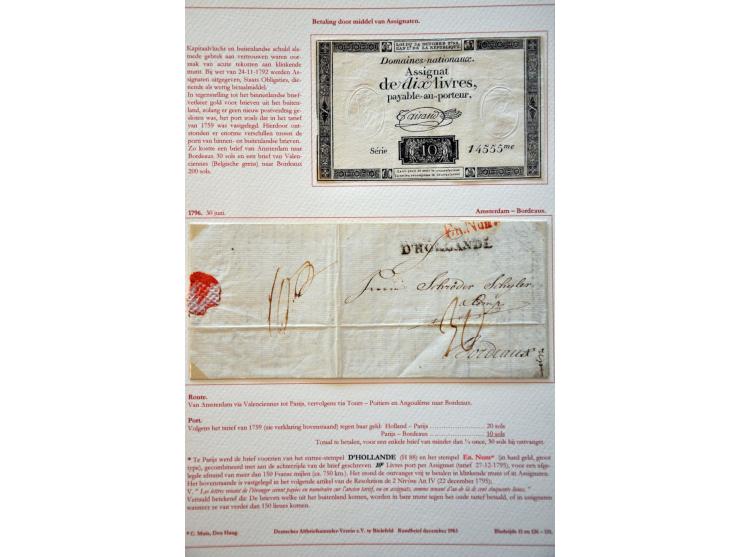 Betaling door middel van Assignaten.
Kapitaalvlucht en buitenlandse schuld als-
mede gebrek aan vertrouwen waren oor-
zaak van acute tekorten aan klinkende
munt. Bij wet van 24-11-1792 werden As-
signaten uitgegeven, Staats Obligaties, die-
nende als wettig betaalmiddel.
In tegenstelling tot het binnenlandse brief-
verkeer gold voor brieven uit het buiten-
land, zolang er geen nieuw postverdrag ge-
sloten was, het port zoals dat in het tarief
van 1759 was vastgelegd. Hierdoor ont-
stonden er enorme verschillen tussen de
porti van binnen- en buitenlandse brieven.
Zo kostte een brief van Amsterdam naar
Bordeaux 30 sols en een brief van Valen-
ciennes (Belgische grens) naar Bordeaux
200 sols.
LOI DU 24 OCTOBRE 1792,
L'AN 1er DE LA RÉPUBLIQUE.
Domaines nationaux.
Assignat
de dix livres,
payable au porteur.
Taisaud
Série 10 14555me
1796. 30 juni. Amsterdam – Bordeaux.
En. Num.
D'HOLLANDE
Schröder Schyler
& Comp
30
Bordeaux
Route.
Van Amsterdam via Valenciennes tot Parijs, vervolgens via Tours – Poitiers en Angoulême naar Bordeaux.
Port.
Volgens het tarief van 1759 (zie verklaring bovenstaand) tegen baar geld: Holland – Parijs 20 sols
Parijs – Bordeaux 10 sols
Totaal te betalen, voor een enkele brief van minder dan ¼ once, 30 sols bij ontvangst.
* Te Parijs werd de brief voorzien van het entree-stempel D'HOLLANDE (H 88) en het stempel En. Num* (in hard geld, groot
type), gecombineerd met aan de achterzijde van de brief geschreven Livres port per Assignat (tarief 27-12-1795), voor een afge-
legde afstand van meer dan 150 Franse mijlen (ca. 750 km). Het stond de ontvanger vrij te betalen in klinkende munt of in Assignaten.
Het bovenstaande is vastgelegd in het volgende artikel van de Resolution de 2 Nivôse An IV (22 december 1795);
V. " Les lettres venant de l'étranger seront payées en numéraire sur l'ancien tarif, ou en assignats, comme venant d'au de là de cent cinquante lieues. "
Vertaald betekend die: De brieven welke uit het buitenland komen, worden in bare munt tegen het oude tarief betaald, of in assignaten
wanneer ze van verder dan 150 lieues komen.
* C. Muis, Den Haag. Deutscher Altbriefsammler-Verein e.V. te Bielefeld Rundbrief december 1963 Bladzijde 11 en 126 – 131.